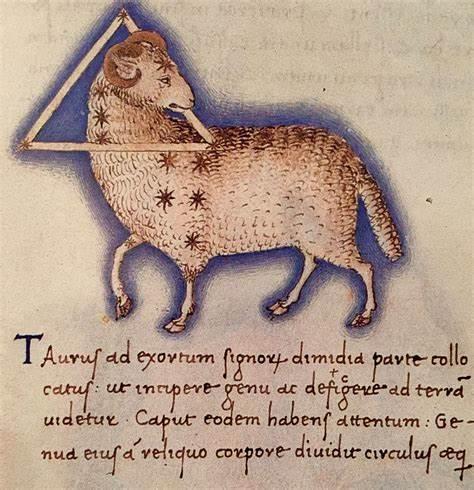 TAurus ad exortum signorx dimidia parte collo
catus: ut incipere genu ac defigere ad terrā
uidetur. Caput eodem habens attentum: Ge-
nua eius ā reliquo corpore diuidit circulus æq